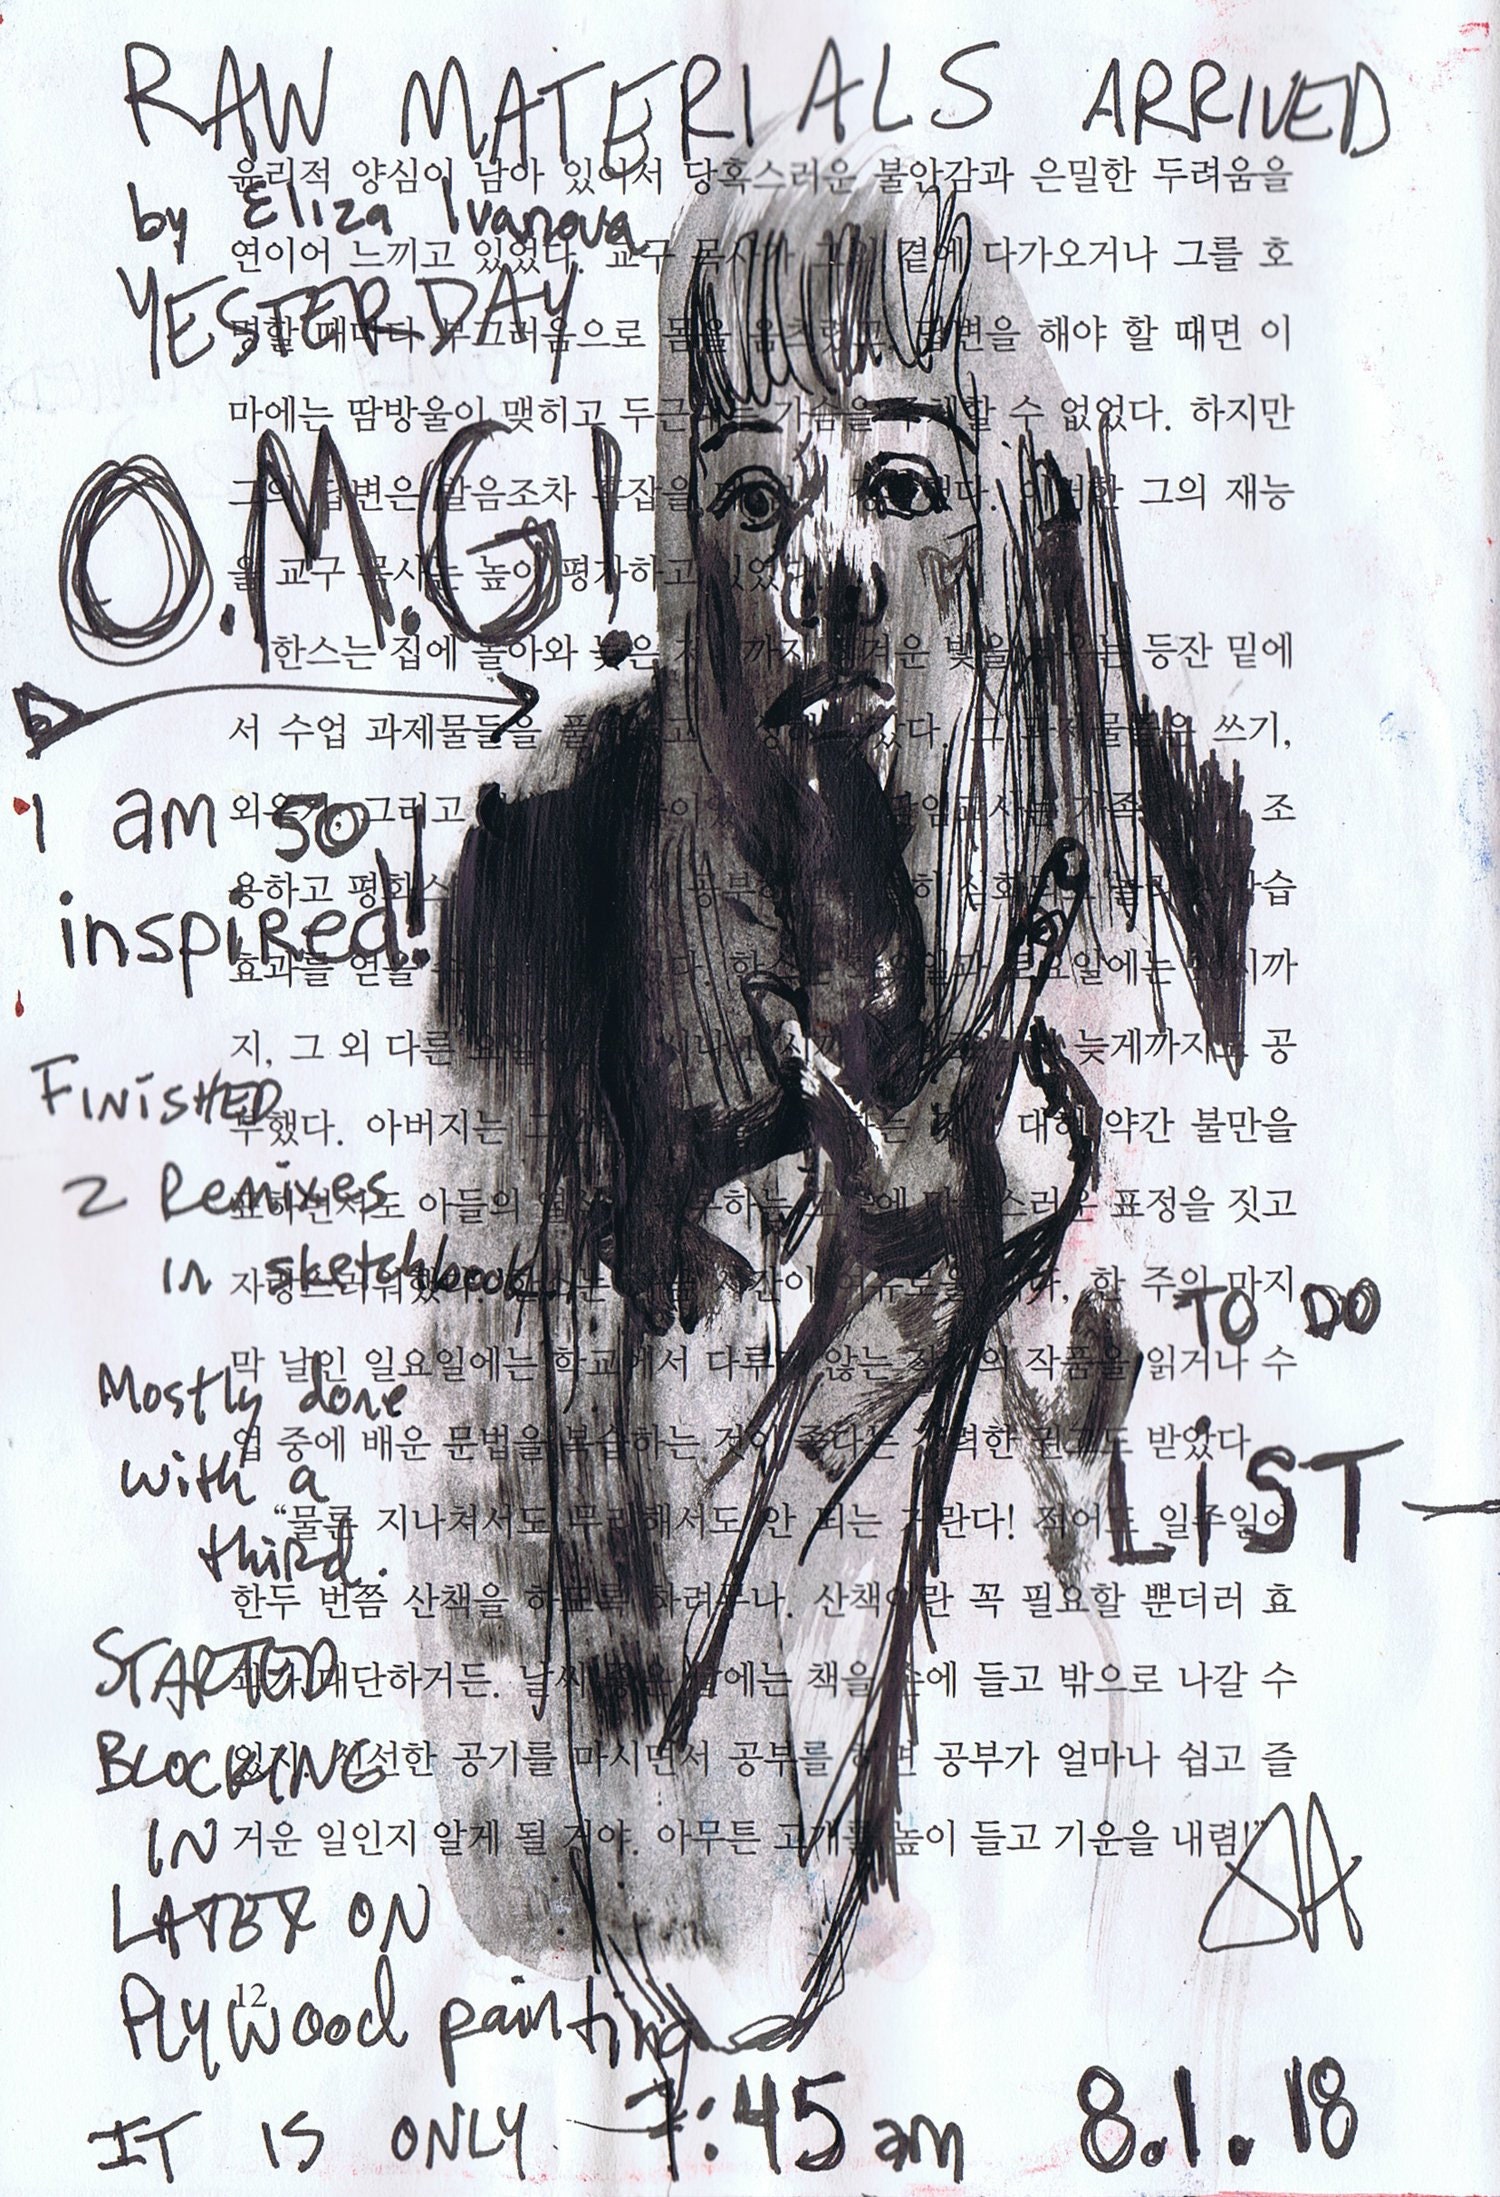 RAW MATERIALS ARRIVED
by Eliza Ivanova
YESTERDAY
O.M.G!
I am so
inspired!!
FINISHED
2 Remixes
in sketchbook
Mostly done
with a
third.
STARTED
BLOCKING
IN
LATEX ON
Plywood painting
IT IS ONLY 7:45 am 8.1.18
TO DO
LIST
JA
윤리적 양심이 남아 있어서 당혹스러운 불안감과 은밀한 두려움을
연이어 느끼고 있었다. 교구 목사가 그의 곁에 다가오거나 그를 호
명할 때마다 부끄러움으로 몸을 움츠렸고, 답변을 해야 할 때면 이
마에는 땀방울이 맺히고 두근거리는 가슴을 주체할 수 없었다. 하지만
그의 답변은 발음조차 그의 재능
을 교구 목사는 높이 평가하고 있었다.
한스는 집에 돌아와 늦은 등잔 밑에
서 수업 과제물들을 그 과제물들은 쓰기,
외우기, 그리고 담임교사는 가족 조
용하고 공부 습
효과를 얻을 수 한스는 화요일과 토요일에는 시까
지, 그 외 다른 요일에는 늦게까지도 공
부했다. 아버지는 대해 약간 불만을
표하면서도 아들의 표정을 짓고
자랑스러워했다. 한스는 시간이 한 주의 마지
막 날인 일요일에는 학교에서 다루지 않는 작가의 작품을 읽거나 수
업 중에 배운 문법을 복습하는 것이 좋다는 강력한 권고도 받았다.
“물론 지나쳐서도 무리해서도 안 되는 거란다! 적어도 일주일에
한두 번쯤 산책을 하도록 하려무나. 산책이란 꼭 필요할 뿐더러 효
과가 대단하거든. 날씨 좋은 날에는 책을 손에 들고 밖으로 나갈 수
있지. 신선한 공기를 마시면서 공부를 하면 공부가 얼마나 쉽고 즐
거운 일인지 알게 될 거야. 아무튼 고개를 높이 들고 기운을 내렴!”
12